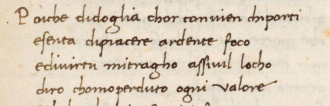 Poiche didoglia chor convien chiporti
esenta dipiacere ardente foco
edivirtu mitragho assivil locho
diro chomo perduto ogni valore